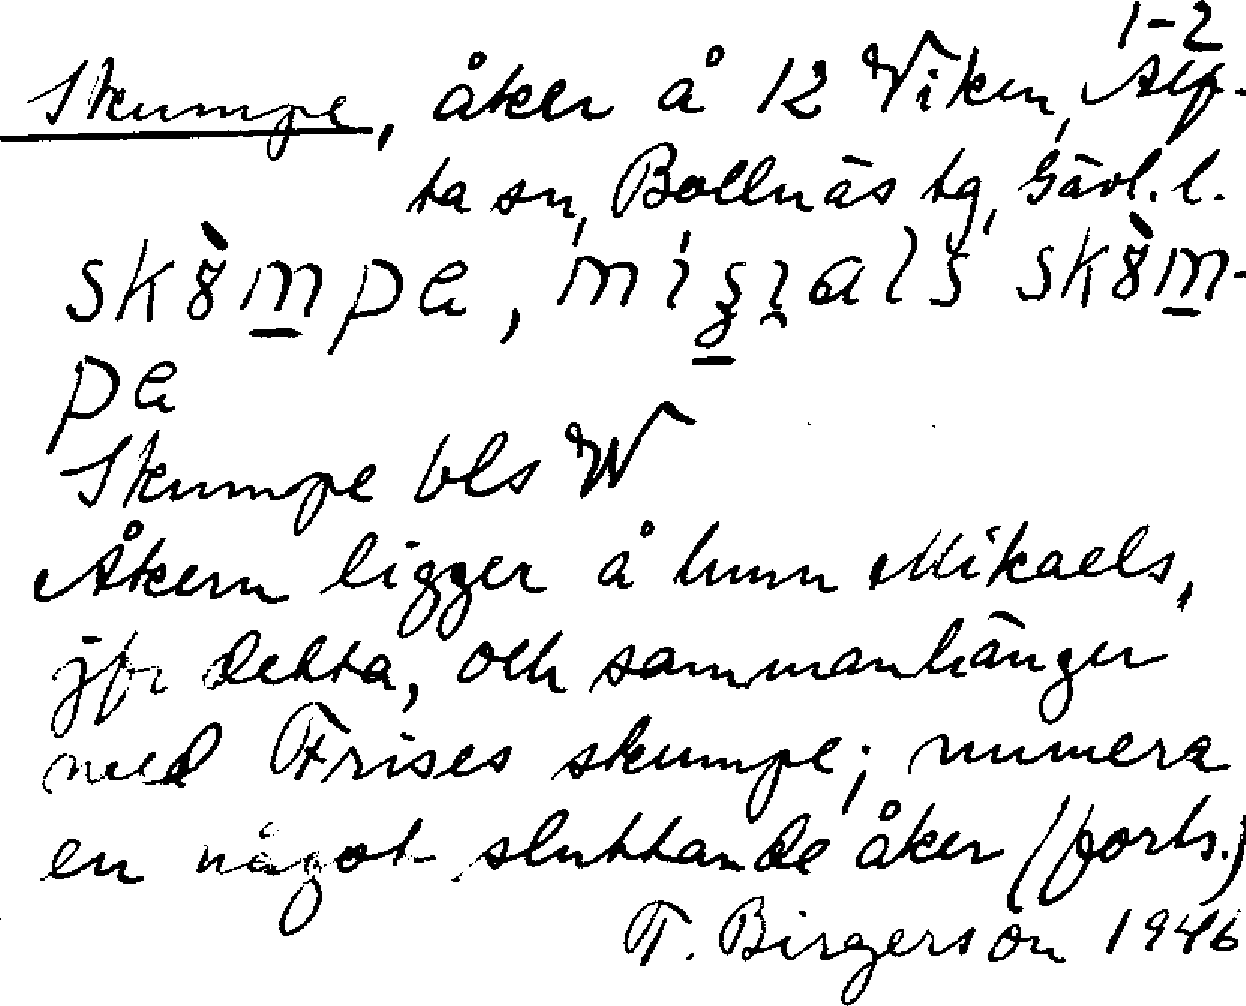 1-2
Skumpe, åker å 12 Viken, Alf-
ta sn, Bollnäs tg, Gävl. l.
sk8̀mpe, mı̀gıals sk8̀m-
pe
Skumpe bls W
Åkern ligger å hmn Mikaels,
jfr detta, och sammanhänger
med Frises skumpe; numera
en något sluttande åker (forts.)
T. Birgerson 1946